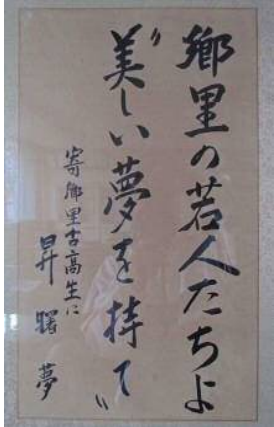 郷里の若人たちよ
"美しい夢を持て"
寄郷里古高生に
昇曙夢